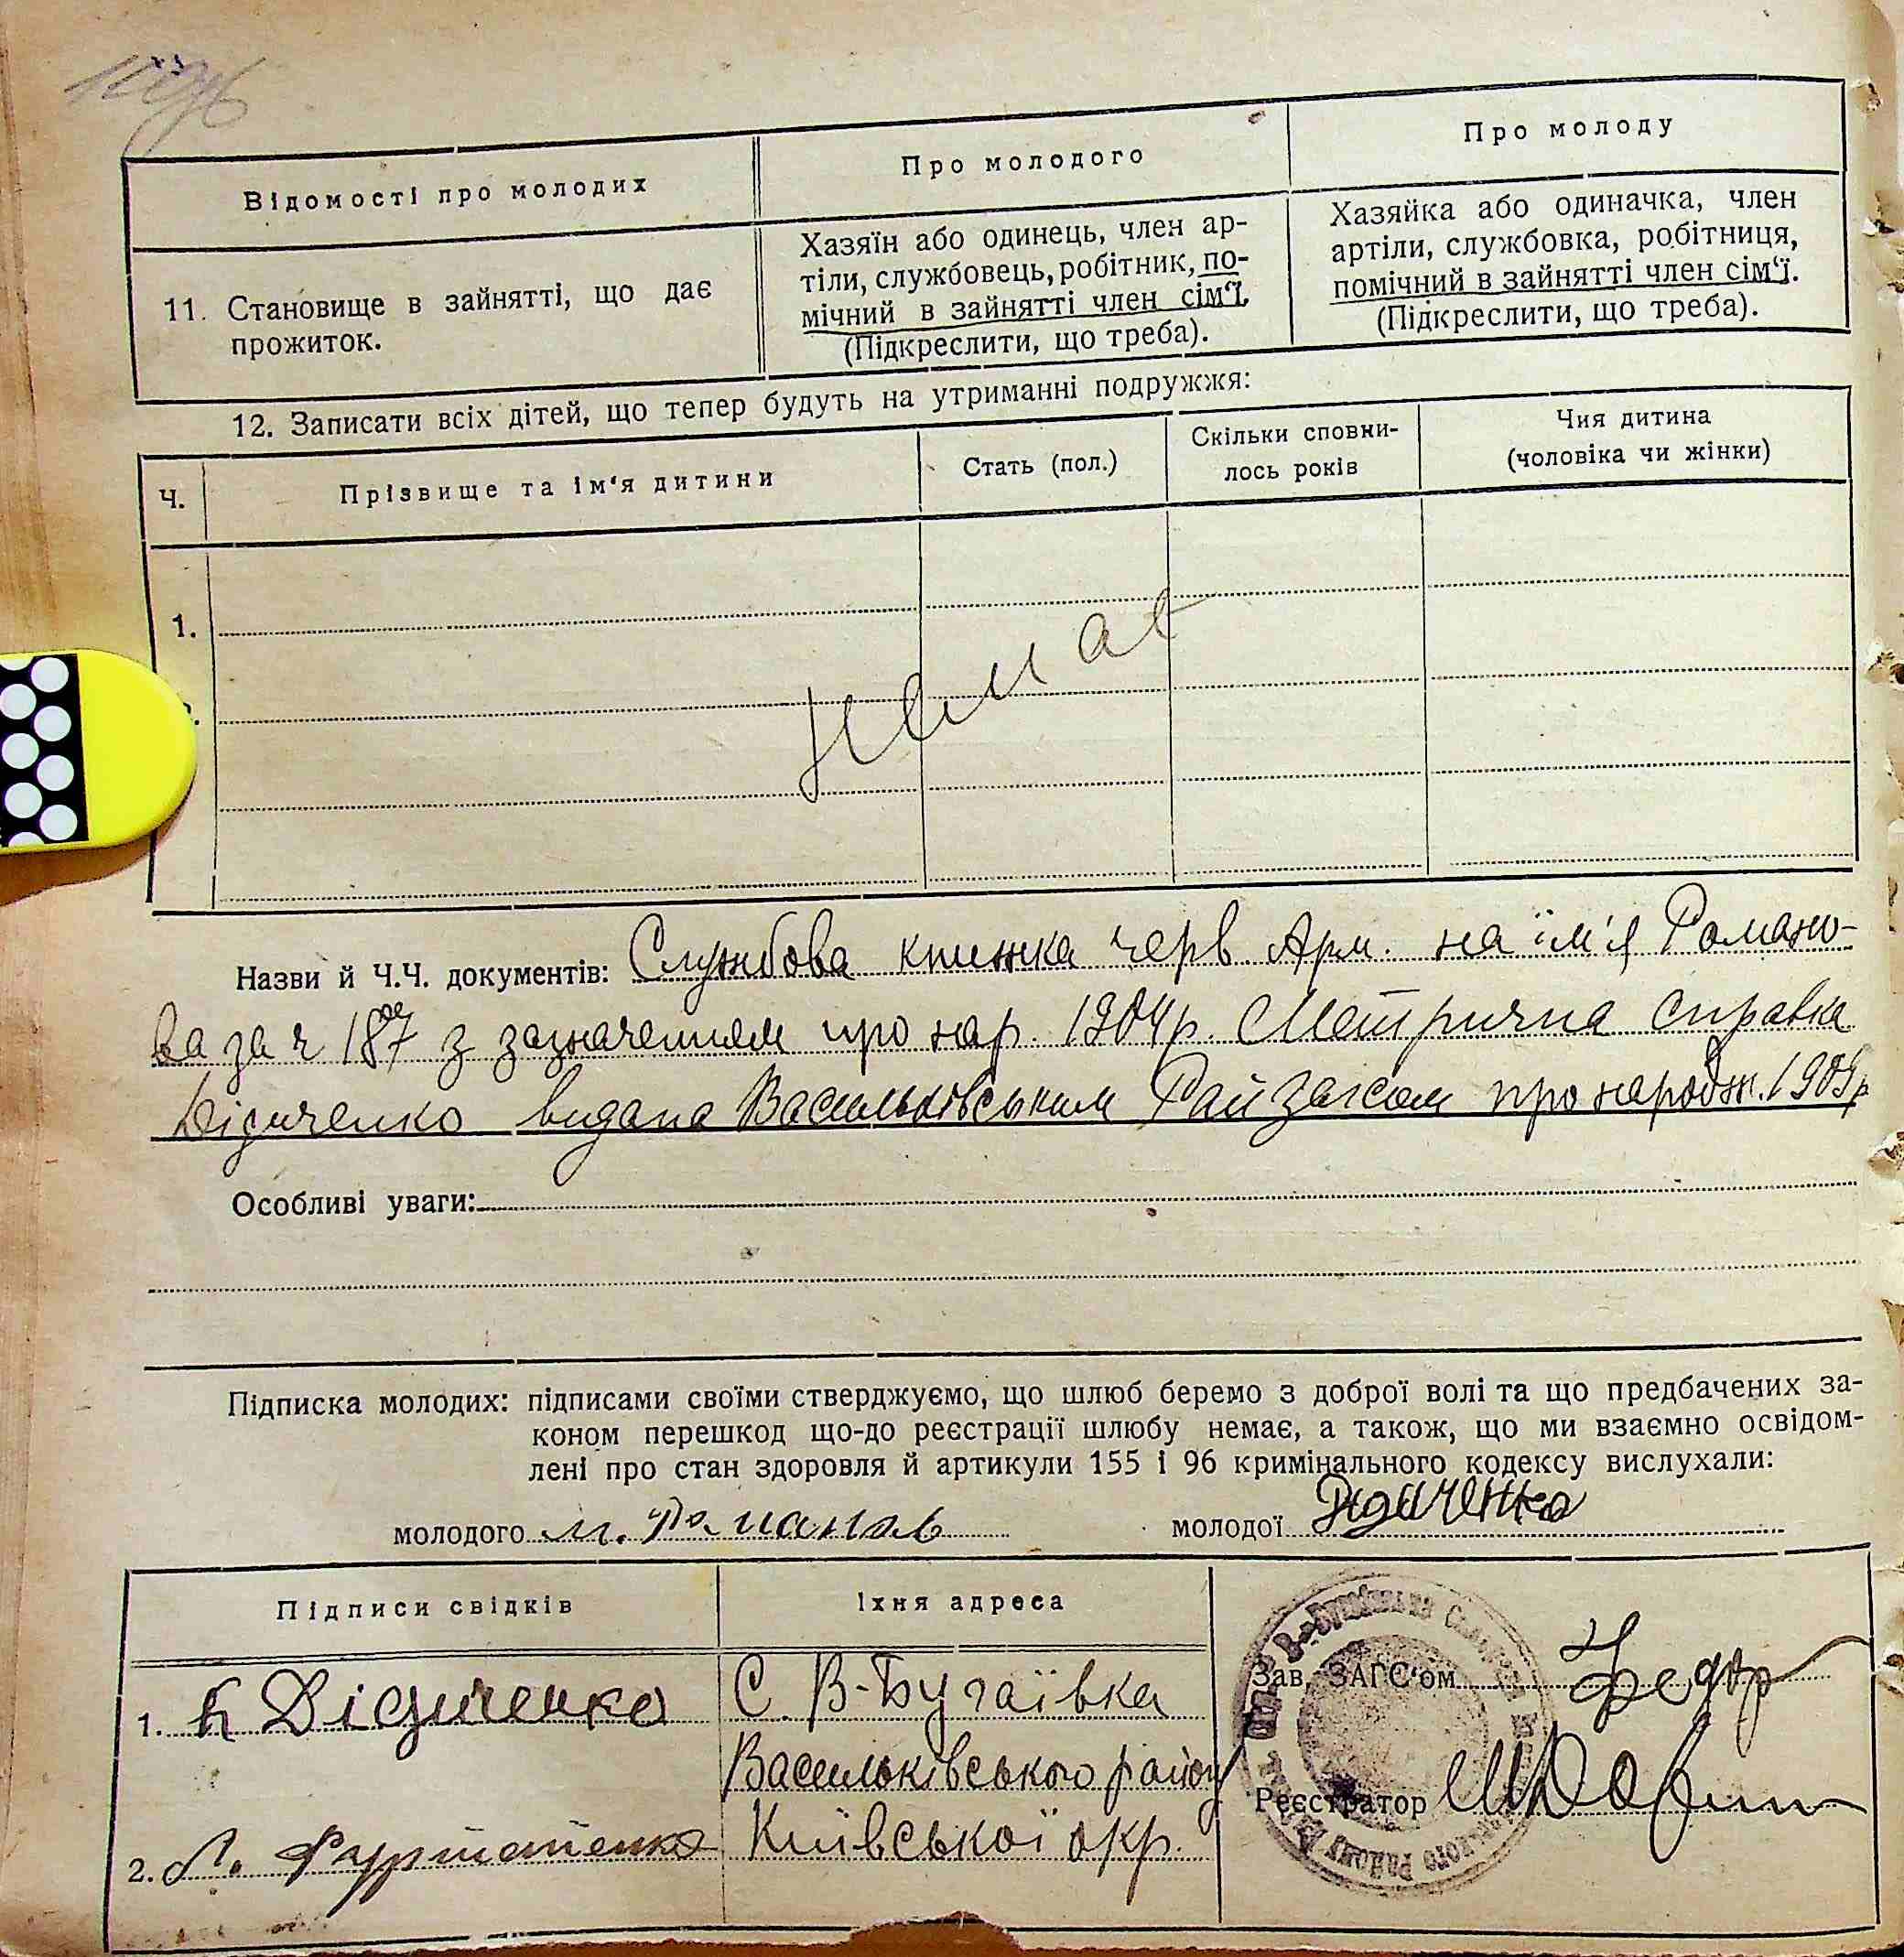 Відомості про молодих
Про молодого
Про молоду
11. Становище в зайнятті, що дає
прожиток.
Хазяїн або одинець, член ар-
тіли, службовець, робітник, по-
мічний в зайнятті член сім'ї.
(Підкреслити, що треба).
Хазяйка або одиначка, член
артіли, службовка, робітниця,
помічний в зайнятті член сім'ї.
(Підкреслити, що треба).
12. Записати всіх дітей, що тепер будуть на утриманні подружжя:
Ч.
Прізвище та ім'я дитини
Стать (пол.)
Скільки сповни-
лось років
Чия дитина
(чоловіка чи жінки)
1.
немає
Назви й Ч.Ч. документів: Службова книжка черв. Арм. на ім'я Романо-
ва за ч 187 з зазначенням про нар. 1904р. Метрична справка
Дідиченко видана Васильківським РайЗагсом про народж. 1909р
Особливі уваги:
Підписка молодих: підписами своїми стверджуємо, що шлюб беремо з доброї волі та що предбачених за-
коном перешкод що-до реєстрації шлюбу немає, а також, що ми взаємно освідом-
лені про стан здоровля й артикули 155 і 96 кримінального кодексу вислухали:
молодого м. Романов
молодої Дідиченко
Підписи свідків
Їхня адреса
1. К Дідиченко
С. В-Бугаївка
Васильківського району
Київської окр.
2.
Зав. ЗАГС'ом Федор
Реєстратор